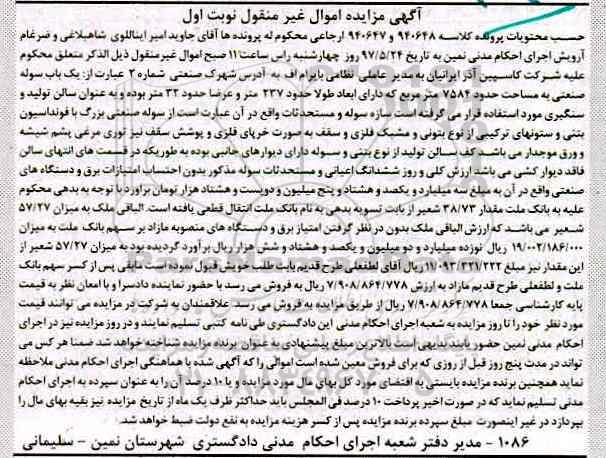 آگهی مزایده اموال غیر منقول نوبت اول
حسب محتویات پرونده کلاسه ۹۴۰۶۴۸ و ۹۴۰۶۴۷ ارجاعی محکوم له پرونده ها آقای جاوید امیر ایناللوی شاهبلاغی و ضرغام
آرویش اجرای احکام مدنی نمین به تاریخ ۹۷/۵/۲۴ روز چهارشنبه راس ساعت ۱۱ صبح اموال غیرمنقول ذیل الذکر متعلق محکوم
علیه شرکت کاسپین آذر ایرانیان به مدیر عاملی نظامی بایرام اف به آدرس شهرک صنعتی شماره ۳ عبارت از: یک باب سوله
صنعتی به مساحت حدود ۷۵۸۴ متر مربع که دارای ابعاد طولا حدود ۲۳۷ متر و عرضا حدود ۳۲ متر بوده و به عنوان سالن تولید و
سنگبری مورد استفاده قرار می گرفته است سازه سوله و مستحدثات واقع در آن عبارت است از سوله صنعتی بزرگ با فونداسیون
بتنی و ستونهای ترکیبی از نوع بتونی و مشبک فلزی و سقف به صورت خرپای فلزی و پوشش سقف نیز توری مرغی پشم شیشه
و ورق موجدار می باشد. کف سالن تولید از نوع بتنی و سوله دارای دیوارهای جانبی بوده به طوریکه در قسمت های انتهای سالن
فاقد دیوار کشی می باشد ارزش کلی و روز ششدانگ اعیانی و مستحدثات سوله مذکور بدون احتساب امتیازات برق و دستگاه های
صنعتی واقع در آن به مبلغ سه میلیارد و یکصد و هشتاد و پنج میلیون و دویست و هشتاد هزار تومان براورد با توجه به بدهی محکوم
علیه به بانک ملت مقدار ۳۸/۷۳ شعیر از بابت تسویه بدهی به نام بانک ملت انتقال قطعی یافته است. الباقی ملک به میزان ۵۷/۲۷
شعیر می باشد که ارزش الباقی ملک بدون در نظر گرفتن امتیاز برق و دستگاه های منصوبه مازاد بر سهم بانک ملت به میزان
۱۹/۰۰۲/۱۸۶/۰۰۰ ریال نوزده میلیارد و دو میلیون و یکصد و هشتاد و شش هزار ریال برآورد گردیده بود به میزان ۵۷/۲۷ شعیر از
این مقدار نیز مبلغ ۱۱/۰۹۳/۳۲۱/۲۲۲ ریال آقای لطفعلی طرح قدیم بابت طلب خویش قبول نموده است مابقی پس از کسر سهم بانک
ملت و لطفعلی طرح قدیم مازاد به ارزش ۷/۹۰۸/۸۶۴/۷۷۸ ریال به فروش می رسد با حضور نماینده دادسرا و با امعان نظر به قیمت
پایه کارشناسی جمعا ۷/۹۰۸/۸۶۴/۷۷۸ ریال از طریق مزایده به فروش می رسد. علاقمندان به شرکت در مزایده می توانند قیمت
مورد نظر خود را تا روز مزایده به شعبه اجرای احکام مدنی این دادگستری طی نامه کتبی تسلیم نمایند و در روز مزایده نیز در اجرای
احکام مدنی نمین حضور یابند بدیهی است بالاترین مبلغ پیشنهادی به عنوان برنده مزایده شناخته خواهد شد ضمنا هر کس می
تواند در مدت پنج روز قبل از روزی که برای فروش معین شده است اموالی را که آگهی شده با هماهنگی اجرای احکام مدنی ملاحظه
نماید همچنین برنده مزایده بایستی به اقتضای مورد کل بهای مال مورد مزایده و یا ۱۰ درصد آن را به عنوان سپرده به اجرای احکام
مدنی تسلیم نماید که در صورت اخیر پرداخت ۱۰ درصد فی المجلس باید حداکثر ظرف یک ماه از تاریخ مزایده نیز بقیه بهای مال را
بپردازد در غیر اینصورت مبلغ سپرده برنده مزایده پس از کسر هزینه مزایده به نفع دولت ضبط خواهد شد.
۱۰۸۶ - مدیر دفتر شعبه اجرای احکام مدنی دادگستری شهرستان نمین - سلیمانی